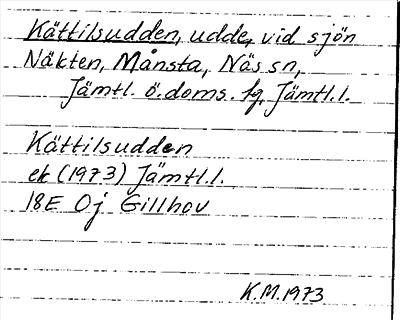 Kättilsudden, udde, vid sjön
Näkten, Månsta, Näs sn,
Jämtl. ö. doms. fg, Jämtl.l.
Kättilsudden
ek (1973) Jämtl.l.
18E Oj Gillhov
K.M. 1973